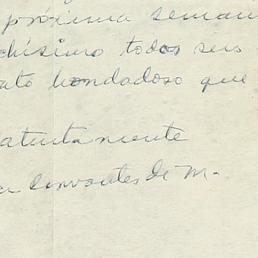 próxima seman
chísimo todos seis
ato bondadoso que
atentamente
a Cervantes de M.